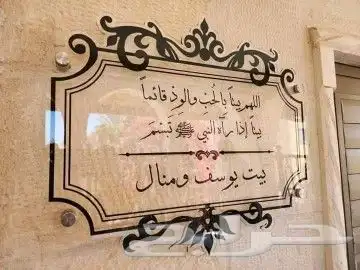 اللهم بيتاً بالحُبِ والوِدِ قائماً
بيتاً إذا رآه النبي ﷺ تبسَمَ
بيت يوسف ومنال
حراج